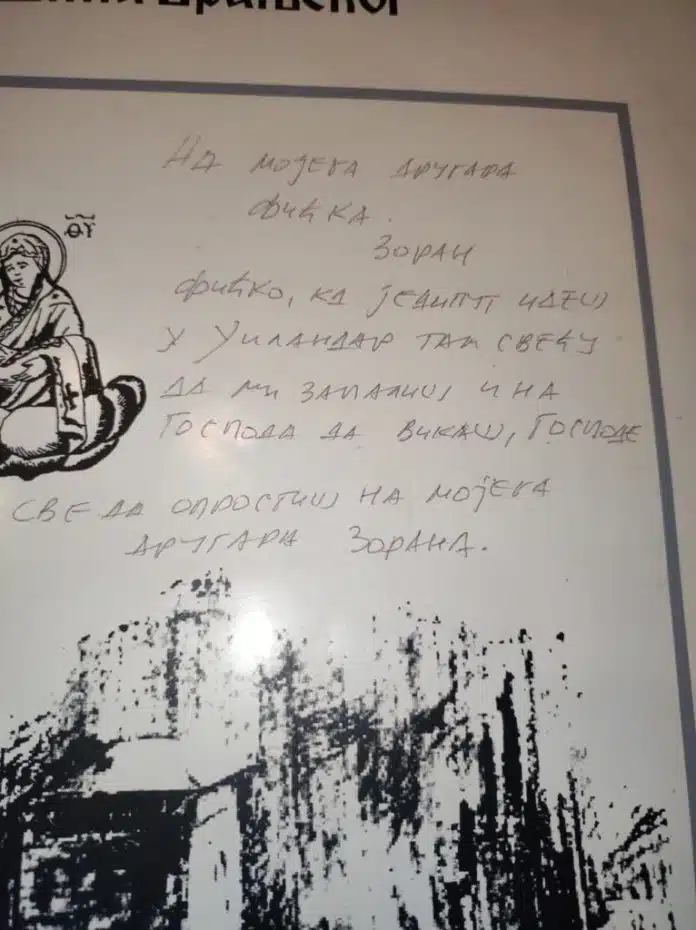 Врањског
НА МОЈЕГА ДРУГАРА
ФИЋКА.
ЗОРАН
ФИЋКО, КД ЈЕДИПУТ ИДЕШ
У УИЛАНДАР ТАМ СВЕЋУ
ДА МИ ЗАПАЛИШ И НА
ГОСПОДА ДА ВИКАШ, ГОСПОДЕ
СВЕ ДА ОПРОСТИШ НА МОЈЕГА
ДРУГАРА ЗОРАНА.